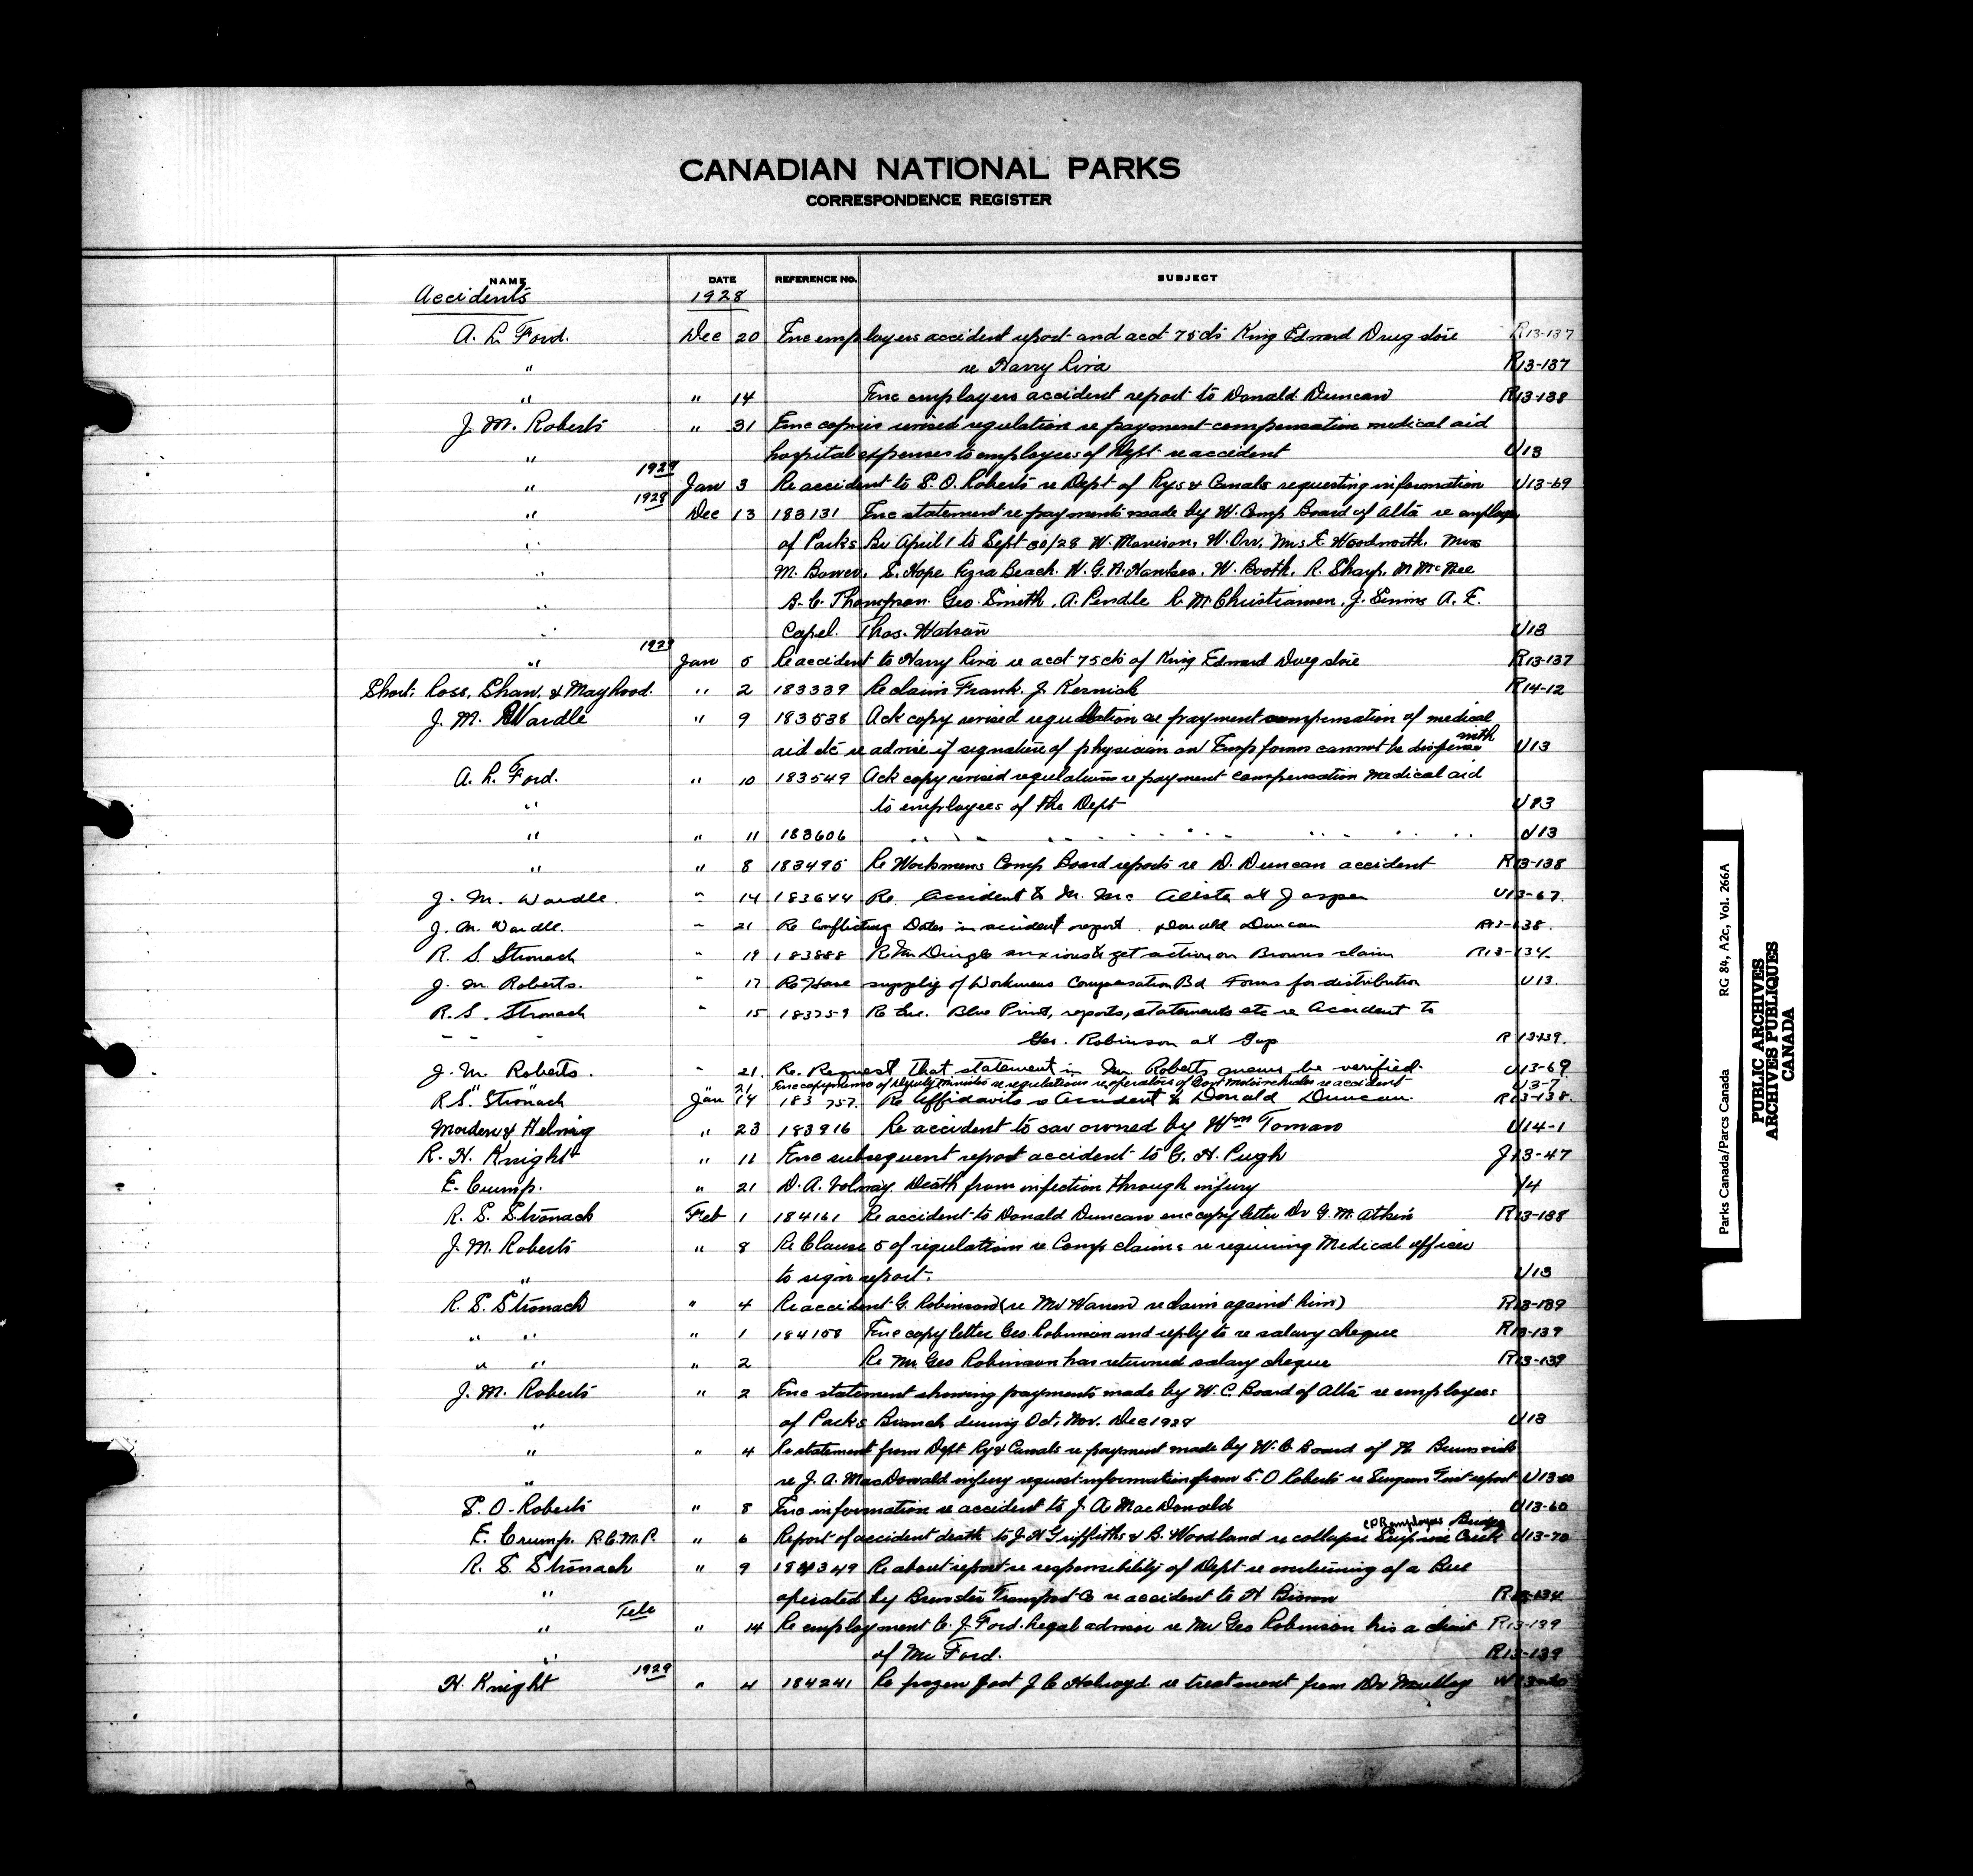 CANADIAN NATIONAL PARKS
CORRESPONDENCE REGISTER
NAME DATE REFERENCE NO. SUBJECT
Accidents 1928
A. L. Ford. Dec 20 Enc employers accident report and acct 75cts King Edward Drug store R13-137
" re Harry R13-137
" " 14 Enc employers accident report to Donald Duncan R13-138
J. M. Roberts " 31 Enc copies revised regulation re payment compensation medical aid
" hospital expenses to employees of Dept re accident U13
" 1929 Jan 3 Re accident to S. O. Roberts re Dept of Rys & Canals requesting information U13-69
" 1928 Dec 13 183131 Enc statement re payments made by W. Comp Board of Alta re employe
" of Parks Br April 1 to Sept 30/28 W. Morrison, W. Orr, Mrs E. Woodworth, Mrs
" M. Bower, S. Hope Ezra Beach. W. Booth, R. Sharp, McNee
" Thompson Geo. Smith, A. Pendle Christiansen, J. A. E.
" Capel. Thos. Watson U13
" 1929 Jan 5 Re accident to Harry re acct 75cts of King Edward Drug store R13-137
Short: Ross, Shaw, & Mayhood. " 2 183339 Re claim Frank. J. Kernick R14-12
J. M. Wardle " 9 183538 Ack copy revised regulation re payment compensation of medical
aid etc re advise if signature of physician on Emp forms cannot be dispense with U13
A. L. Ford. " 10 183549 Ack copy revised regulations re payment compensation medical aid
" to employees of the Dept U13
" " 11 183606 " " " " " " " " U13
" " 8 183495 Re Workmens Comp Board reports re D. Duncan accident R13-138
J. M. Wardle. " 14 183644 Re. Accident to M. Mc at Jasper U13-67.
J. M. Wardle. " 21 Re Conflicting Dates in accident report. Donald Duncan R13-138.
R. S. Stronach " 19 183888 Re Mr Dingle anxious to get action on Browns claim R13-134.
J. M. Roberts. " 17 Re Have supply of Workmens Compensation Bd Forms for distribution U13.
R. S. Stronach " 15 183759 Re Enc. Blue Print, reports, statements etc re Accident to
" " Geo. Robinson at Gap R13-139.
J. M. Roberts. " 21. Re. Request that statement in Mr Roberts memo be verified. U13-69
" " " 21 Enc copy memo of Deputy Minister re regulations re operators of Govt motor vehicles re accident U13-7
R. S. Stronach Jan 14 183 757. Re Affidavits re Accident to Donald Duncan. R13-138.
Morden & Helwig " 23 183916 Re accident to car owned by Wm Toman U14-1
R. H. Knight " 11 Enc subsequent report accident to G. H. Pugh J13-47
E. Crump. " 21 D. A. Volnay. Death from infection through injury 14
R. S. Stronach Feb 1 184161 Re accident to Donald Duncan enc copy letter Dr G. M. Atkin R13-138
J. M. Roberts " 8 Re Clause 5 of regulations re Comp claims re requiring Medical officer
" to sign report. U13
R. S. Stronach " 4 Re accident G. Robinson (re Mr Warren re claim against him) R13-139
" " " 1 184158 Enc copy letter Geo. Robinson and reply to re salary cheque R13-139
" " " 2 Re Mr. Geo Robinson has returned salary cheque R13-139
J. M. Roberts " 2 Enc statement showing payments made by W. C. Board of Alta re employees
" of Parks Branch during Oct, Nov. Dec 1928 U13
" " 4 Re statement from Dept Ry & Canals re payment made by W. C. Board of N Brunswick
" re J. A. MacDonald injury request information from S. O Roberts re report U13-60
S. O. Roberts " 8 Enc information re accident to J. A MacDonald U13-60
E. Crump. R.C.M.P. " 6 Report of accident death to J. H Griffith & B. Woodland re collapse CPR employees Surprise Creek Bridge U13-70
R. S. Stronach " 9 184349 Re about report re responsibility of Dept re overturning of a Bus
" operated by Brewster Transport Co re accident to H Brown R13-134
" Feb " 14 Re employment C. J. Ford. Legal advisor re Mr Geo Robinson his a client R13-139
" of Mr Ford. R13-139
H. Knight 1929 " 4 184241 Re frozen foot J C Holroyd. re treatment from Dr
Parks Canada/Parcs Canada RG 84, A2c, Vol. 266A
PUBLIC ARCHIVES
ARCHIVES PUBLIQUES
CANADA